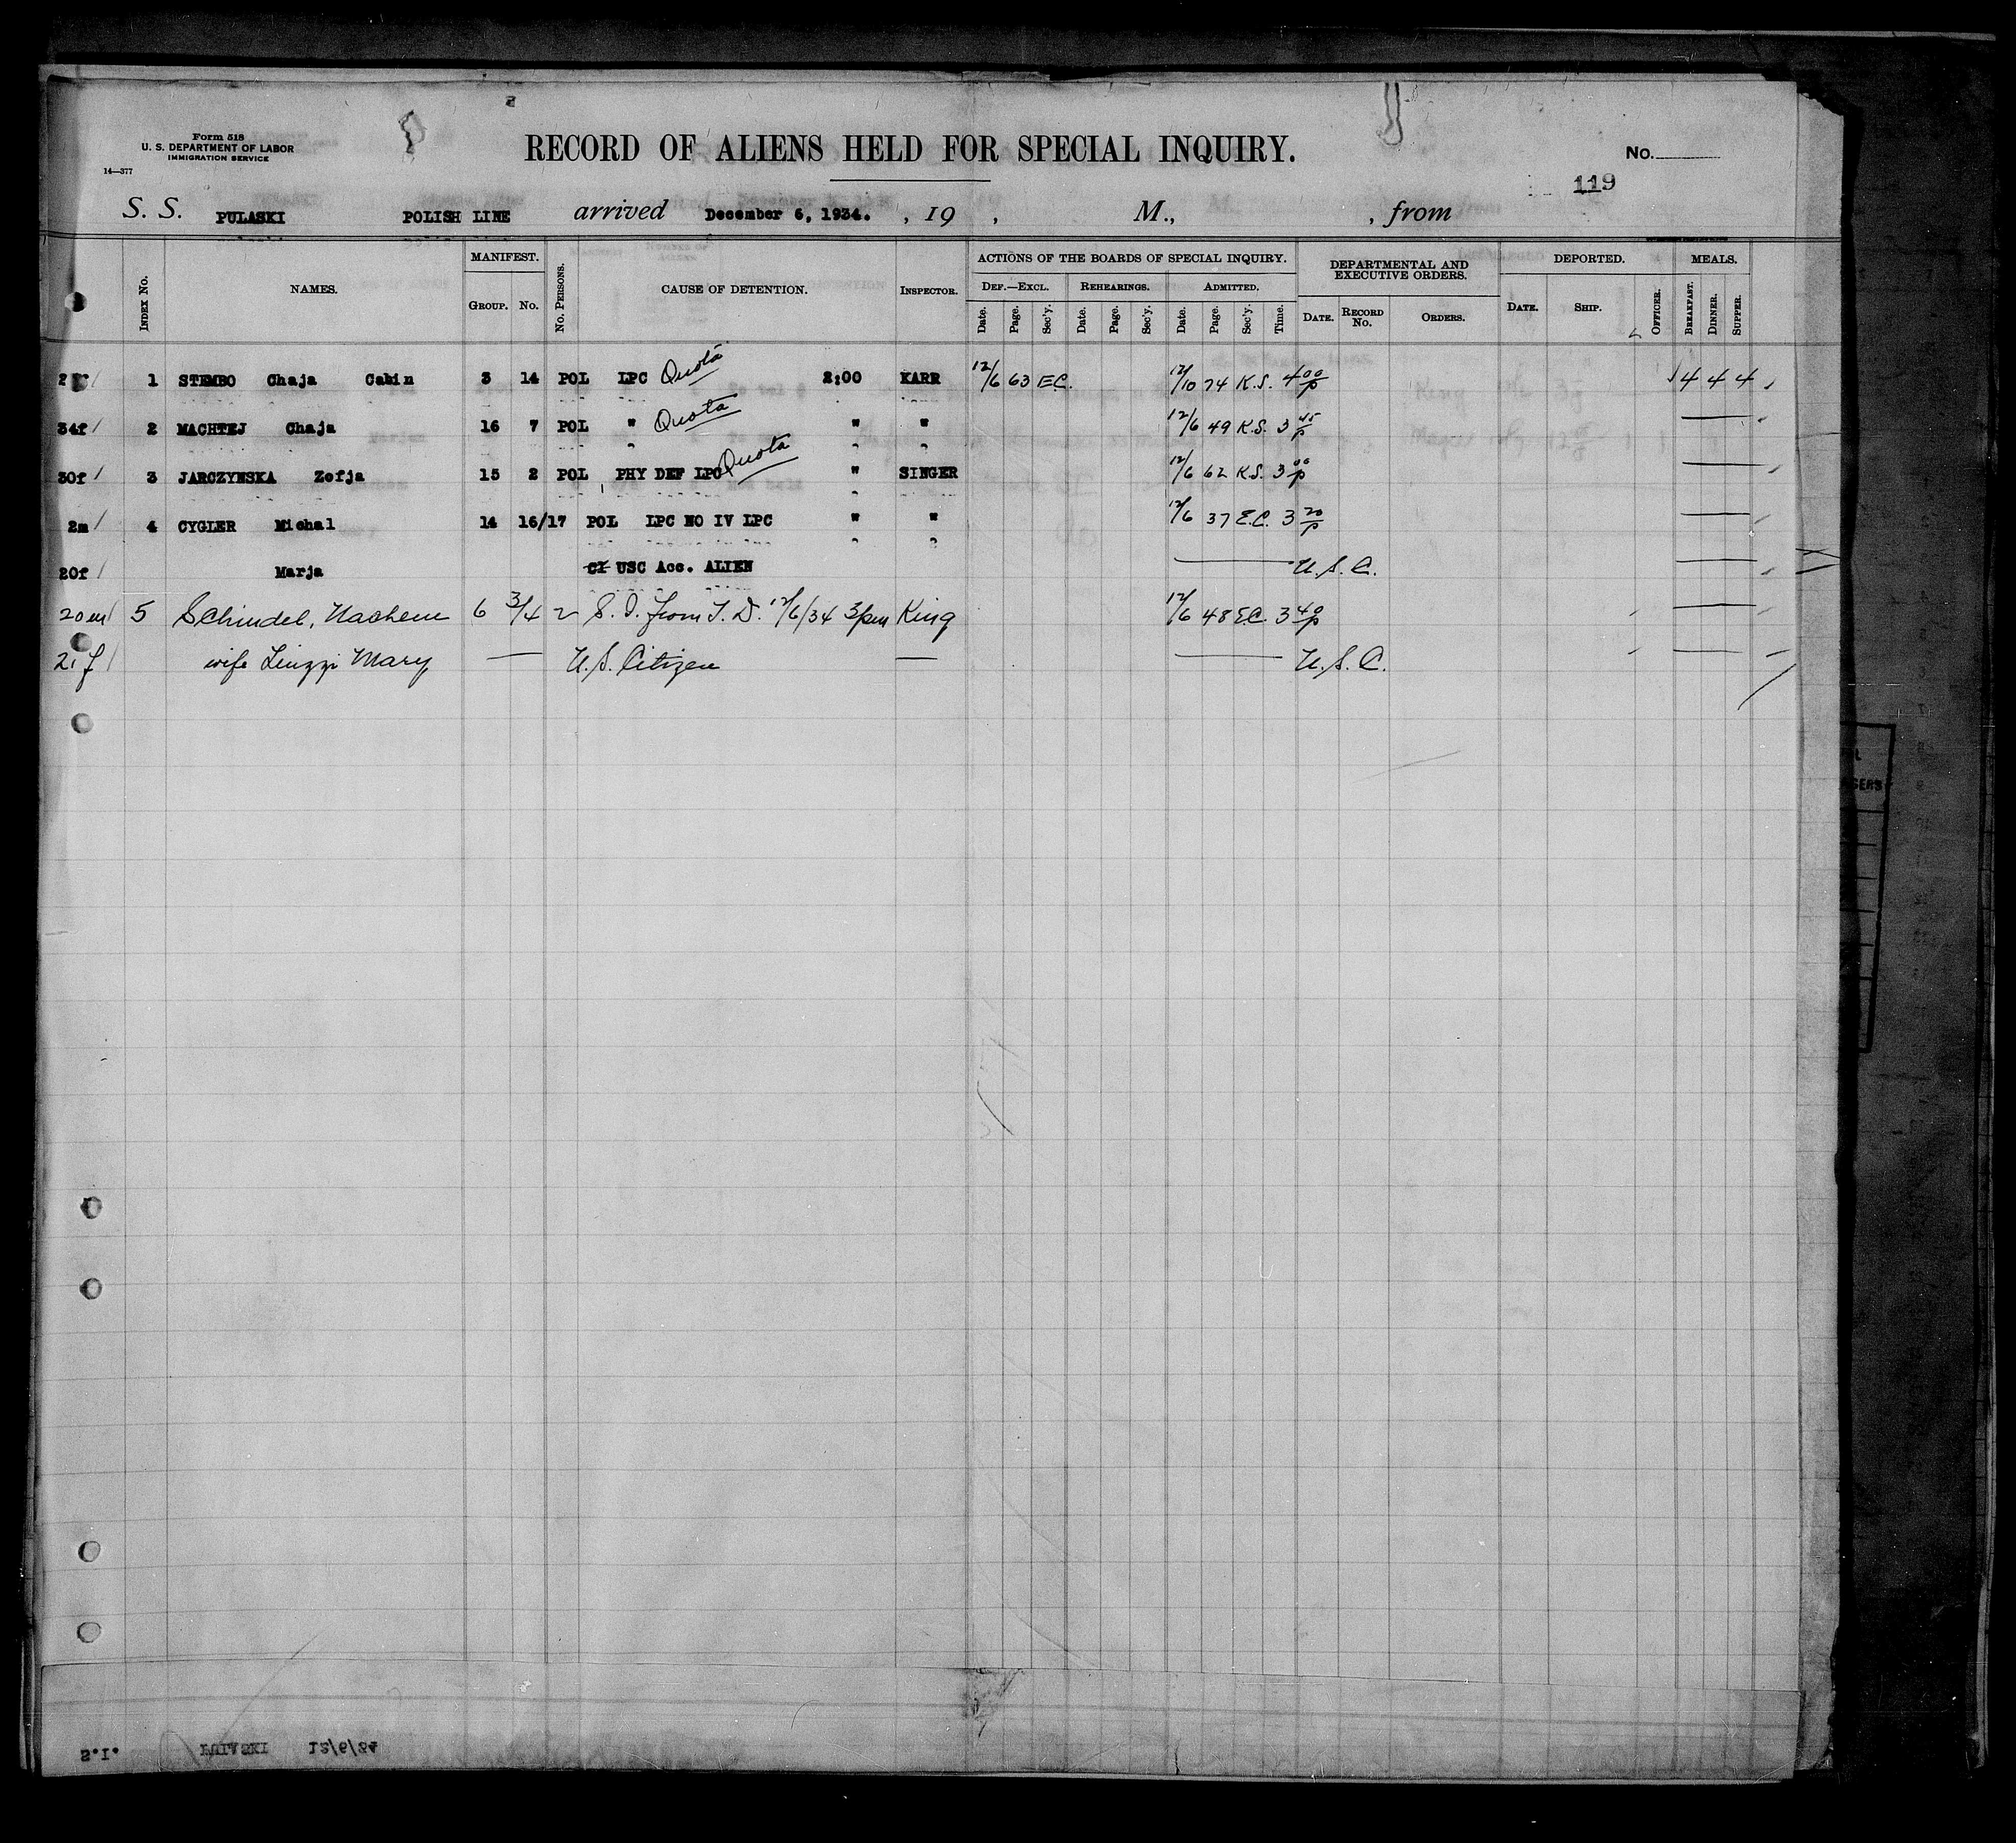 Form 518
U. S. DEPARTMENT OF LABOR
IMMIGRATION SERVICE
14—377
RECORD OF ALIENS HELD FOR SPECIAL INQUIRY.
No.
119
S. S. PULASKI POLISH LINE arrived December 6, 1934. , 19 , M., , from
INDEX NO. NAMES. MANIFEST. GROUP. NO. NO. PERSONS. CAUSE OF DETENTION. INSPECTOR. ACTIONS OF THE BOARDS OF SPECIAL INQUIRY. DEPARTMENTAL AND EXECUTIVE ORDERS. DEPORTED. MEALS.
DEF.—EXCL. REHEARINGS. ADMITTED.
Date. Page. Sec'y. Date. Page. Sec'y. Date. Page. Sec'y. Time. DATE. RECORD NO. ORDERS. DATE. SHIP. OFFICER. BREAKFAST. DINNER. SUPPER.
1 STEMBO Chaja Gabin 3 14 POL LPC Quota 2:00 KARR 12/6 63 E.C. 12/10 74 K.S. 4 00/p 4 4 4
34f 2 MACHTEJ Chaja 16 7 POL " Quota " " 12/6 49 K.S. 3 45/p
30f 3 JARCZYNSKA Zofja 15 2 POL PHY DEF LPC Quota " SINGER 12/6 62 K.S. 3 00/p
2m 4 CYGLER Michal 14 16/17 POL LPC NO IV LPC " " 12/6 37 E.C. 3 20/p
20f Marja CI USC Acc. ALIEN U.S.C.
20m 5 Schindel, Nachem 6 3/4 2 S.I. from T.D. 12/6/34 3pm King 12/6 48 E.C. 3 40/p
21f wife Mary U.S. Citizen U.S.C.
S.I. PULASKI 12/6/34